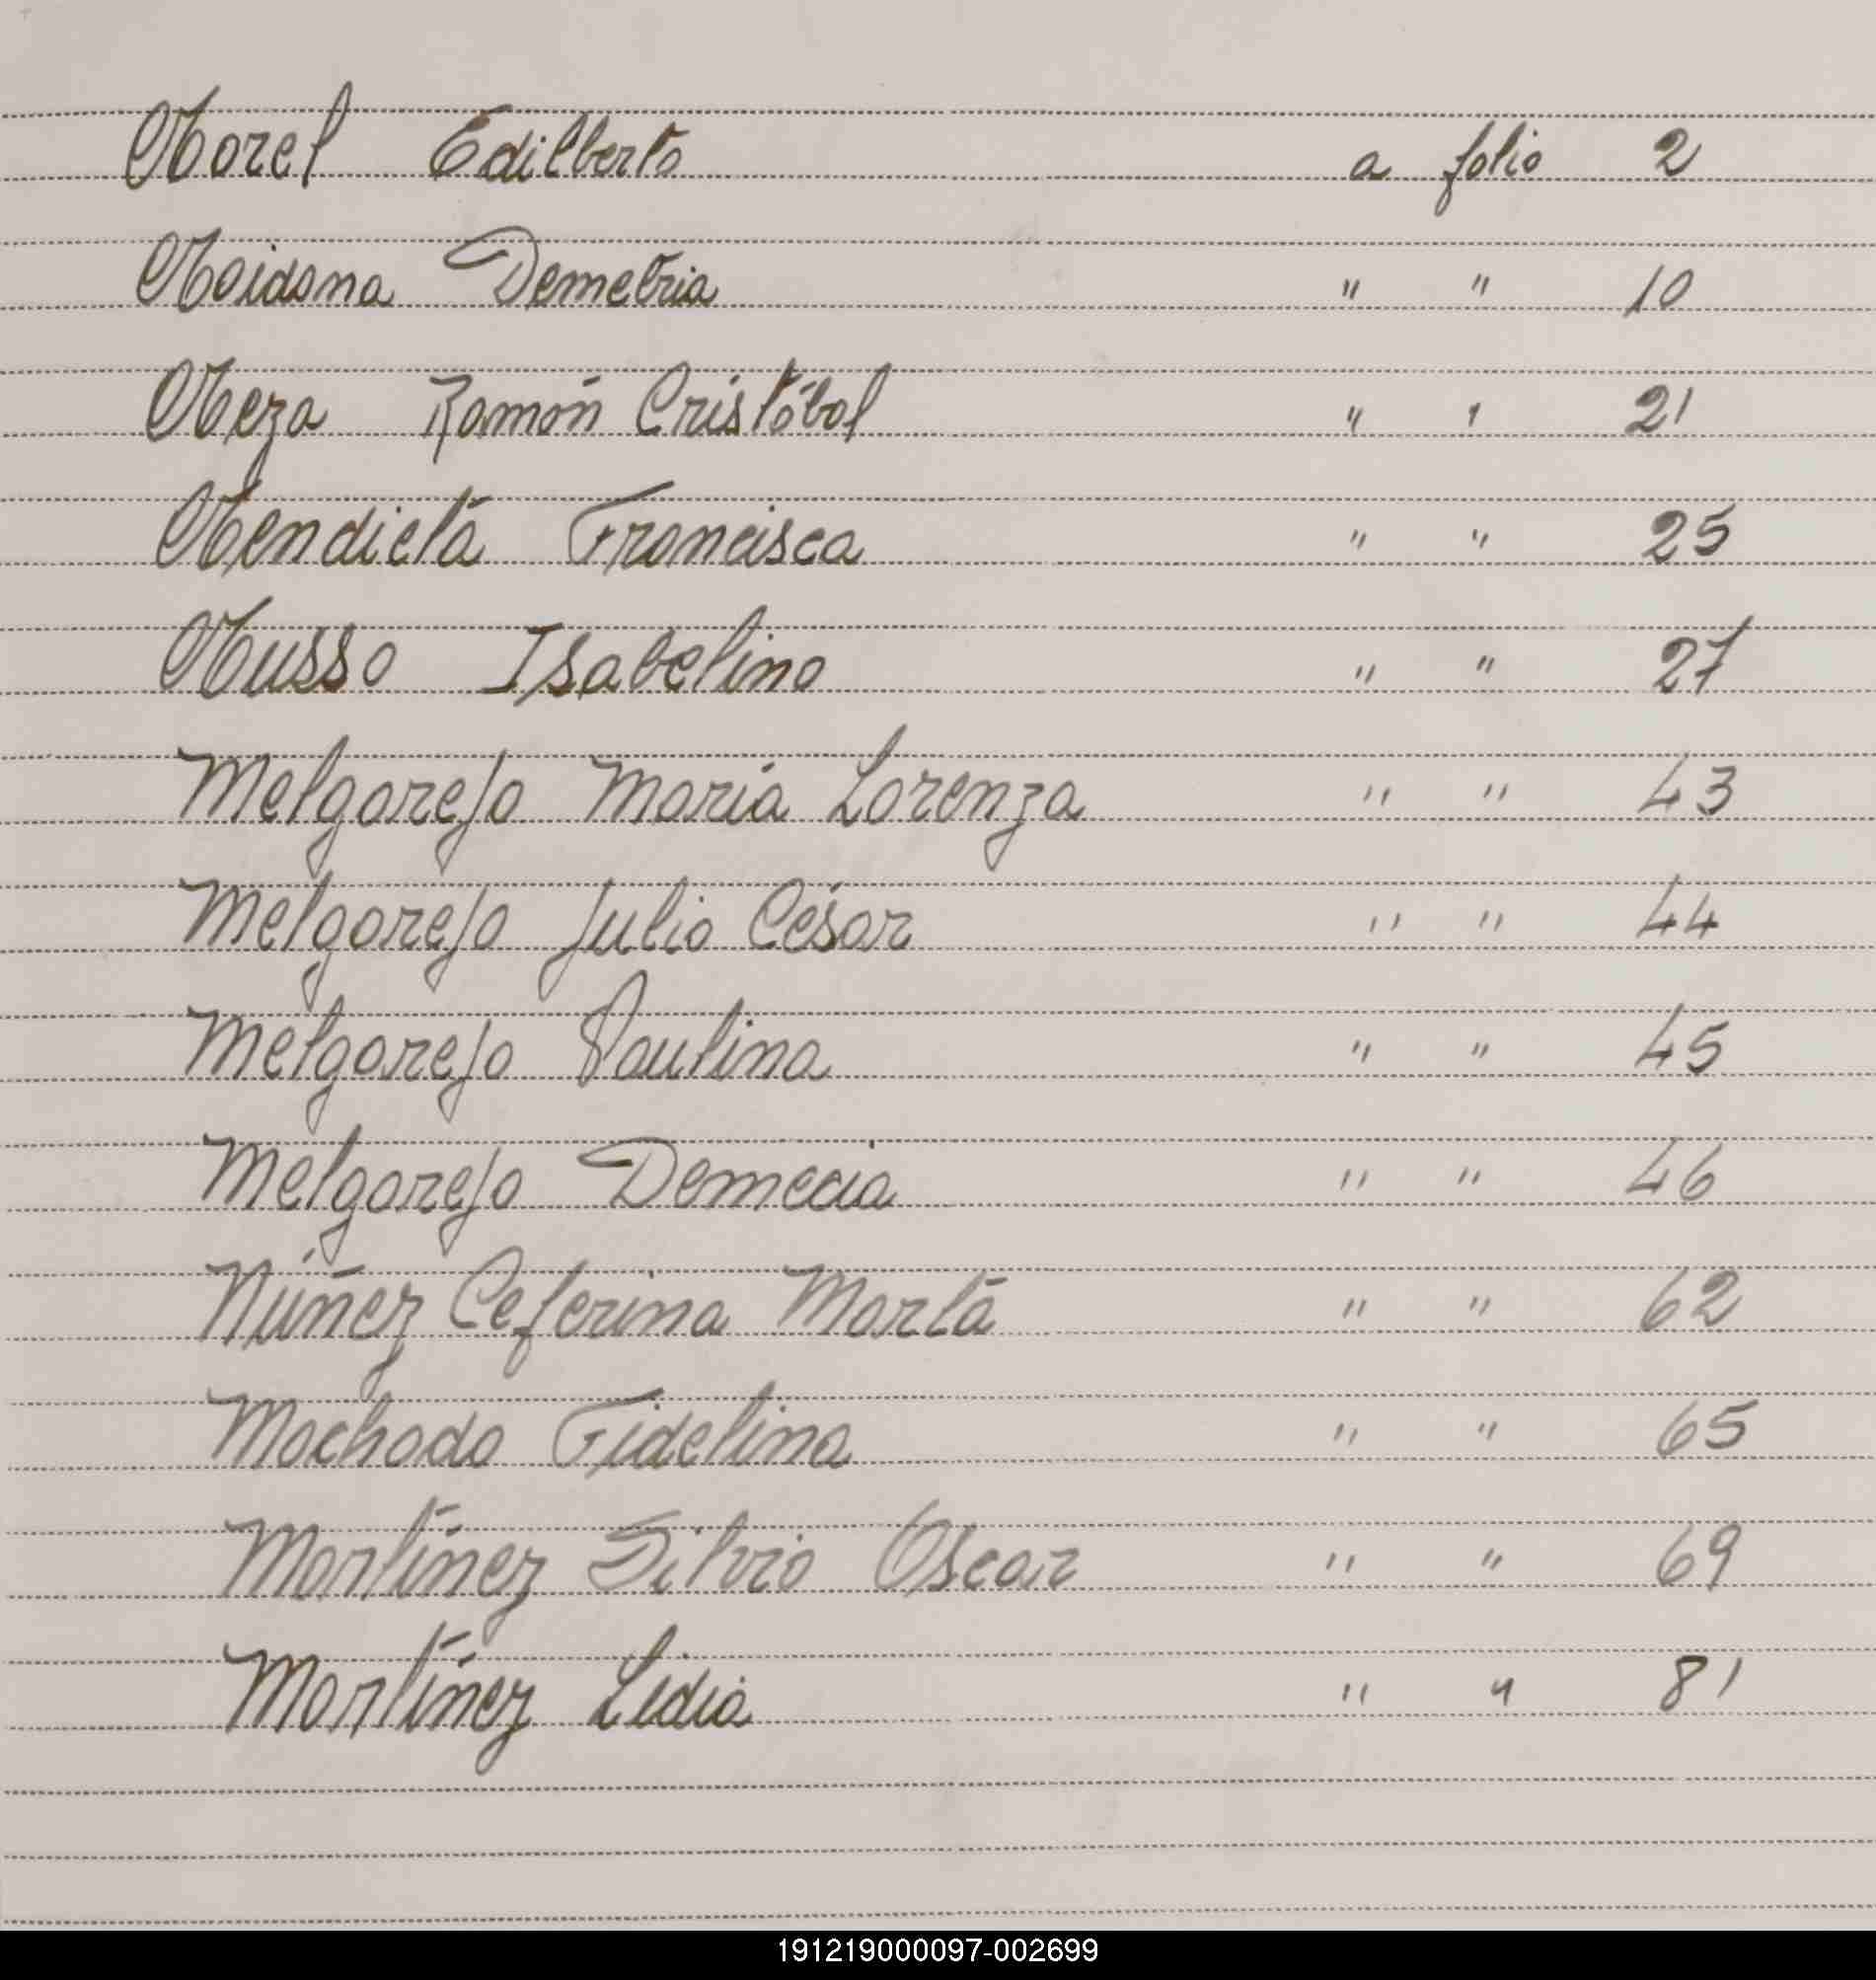 Morel Edilberto a folio 2
Maidana Demetria " " 10
Meza Ramón Cristóbal " " 21
Mendieta Francisca " " 25
Musso Isabelino " " 27
Melgarejo María Lorenza " " 43
Melgarejo Julio César " " 44
Melgarejo Paulina " " 45
Melgarejo Demecia " " 46
Núñez Ceferina Marta " " 62
Machado Fidelina " " 65
Martínez Silvio Oscar " " 69
Martínez Lidia " " 81
191219000097-002699